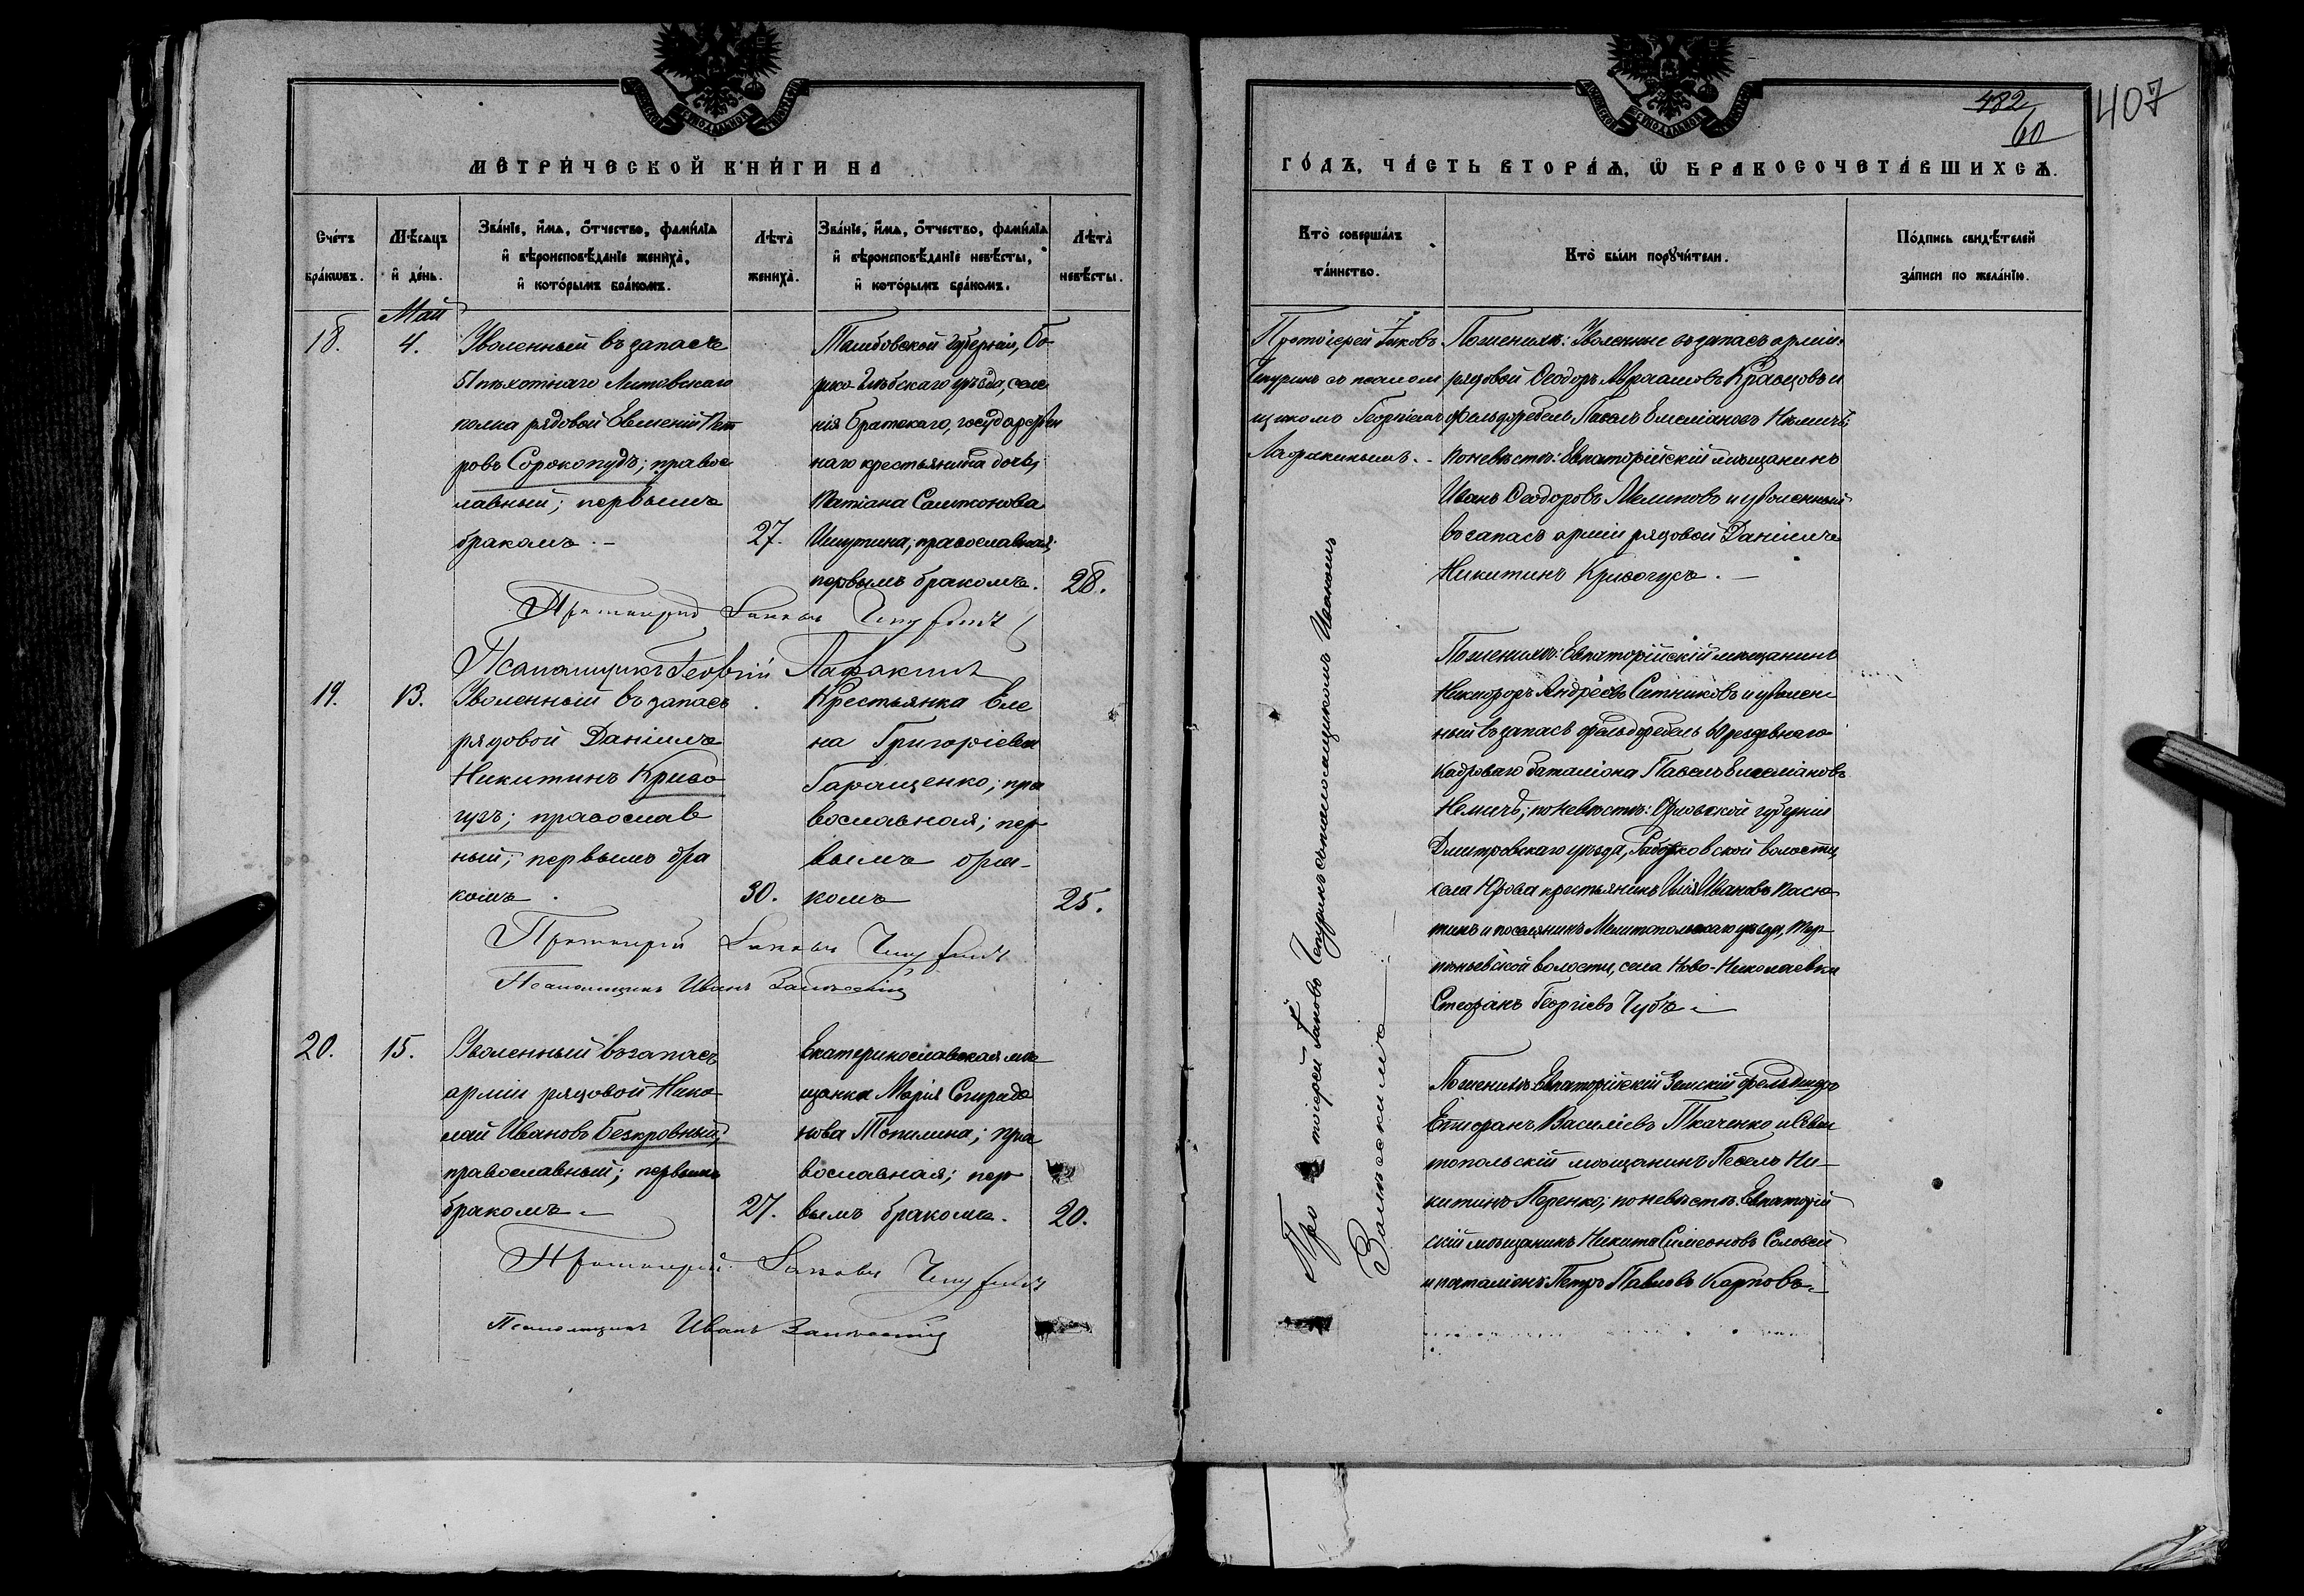 МЕТРИ́ЧЕСКОЙ КНИ́ГИ НА
Сче́тъ бра́ковъ.
Мѣ́сяцъ и де́нь.
Зва́нїе, и́мя, о́тчество, фами́лїа
и вѣроисповѣ́данїе жениха̀,
и кото́рымъ бра́комъ.
Лѣта̀ жениха̀.
Зва́нїе, и́мя, о́тчество, фами́лїа
и вѣроисповѣ́данїе невѣ́сты,
и кото́рымъ бра́комъ.
Лѣта̀ невѣ́сты.
Май
18.
4.
Уволенный въ запасъ
51 пѣхотнаго Литовскаго
полка рядовой Евменій Пет
ровъ Сорокопудъ; правос
лавный; первымъ
бракомъ. –
27.
Тамбовской губерніи, Бо
рисо-Глѣбскаго уѣзда, селе
нія Братскаго, государствен
наго крестьянина дочь,
Татіана Самсонова
православная;
первымъ бракомъ.
28.
Протоіерей Іаковъ Чепуринъ
Псаломщикъ Георгій Лафакинъ
19.
13.
Уволенный въ запасъ
рядовой Даніилъ
Никитинъ Криво
гузъ; православ
ный; первымъ бра
комъ.
30.
Крестьянка Еле
на Григоріева
Гаращенко; пра
вославная; пер
вымъ бра–
комъ
25.
Протоіерей Іаковъ Чепуринъ
Псаломщикъ Иванъ Залѣсскій
20.
15.
Уволенный въ запасъ
арміи рядовой Нико
лай Ивановъ Безкровный;
православный; первымъ
бракомъ. –
27.
Екатеринославская мѣ
щанка Марія Спиридо
нова Топилина; пра
вославная; пер
вымъ бракомъ.
20.
Протоіерей Іаковъ Чепуринъ
Псаломщикъ Иванъ Залѣсскій
482
60
407
ГО́ДЪ, ЧА́СТЬ ВТОРА́Я, Ѡ БРАКОСОЧЕТА́ВШИХСЯ.
Кто̀ соверша́лъ
та́инство.
Кто̀ бы́ли поручи́тели.
По́дпись свидѣ́телей
за́писи по жела́нїю.
Протоіерей Іаковъ
Чепуринъ съ псалом
щикомъ Георгіемъ
Лафакинымъ. –
По женихѣ: Уволенные въ запасъ арміи:
рядовой Ѳеодоръ Авраамовъ Кравцовъ и
фельдфебель Павелъ Емеліановъ Немичъ;
по невѣстѣ: Евпаторійскій мѣщанинъ
Иванъ Ѳеодоровъ Мелиховъ и уволенный
въ запасъ арміи рядовой Даніилъ
Никитинъ Кривогузъ. –
Протоіерей Іаковъ Чепуринъ съ псаломщикомъ Иваномъ
Залѣсскимъ
По женихѣ: Евпаторійскій мѣщанинъ
Никифоръ Андреевъ Ситниковъ и уволен
ный въ запасъ фельдфебель 60 резервнаго
Кадроваго баталіона Павелъ Емеліановъ
Немичъ; по невѣстѣ: Орловской губерніи
Дмитровскаго уѣзда, волости,
села крестьянинъ Илія Ивановъ Васю
тинъ и поселянинъ Мелитопольскаго уѣзда, Тер
пѣньевской волости, села Ново-Николаевки
Стефанъ Георгіевъ Чубъ. –
По женихѣ: Евпаторійскій Земскій фельдшеръ
Стефанъ Василіевъ Ткаченко и Севас
топольскій мѣщанинъ Павелъ Ни–
китинъ по невѣстѣ: Евпаторій
скій мѣщанинъ Никита Симеоновъ Соловей
и Петръ Павловъ Карповъ. –